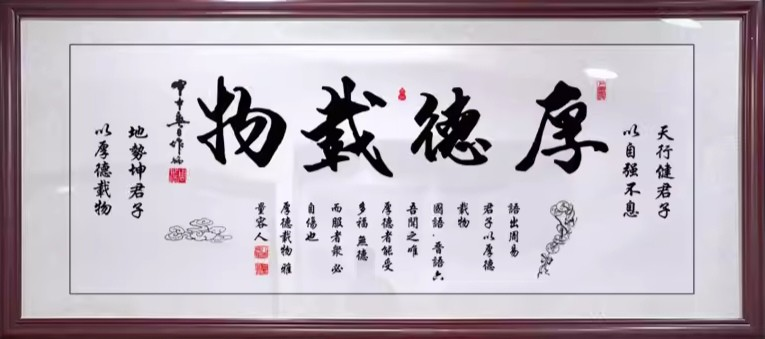 天行健君子
以自强不息
厚德載物
語出周易
君子以厚德
載物
國語·晉語六
吾聞之唯
厚德者能受
多福 無德
而服者衆 必
自傷也
厚德載物 雅
量容人
地勢坤君子
以厚德載物